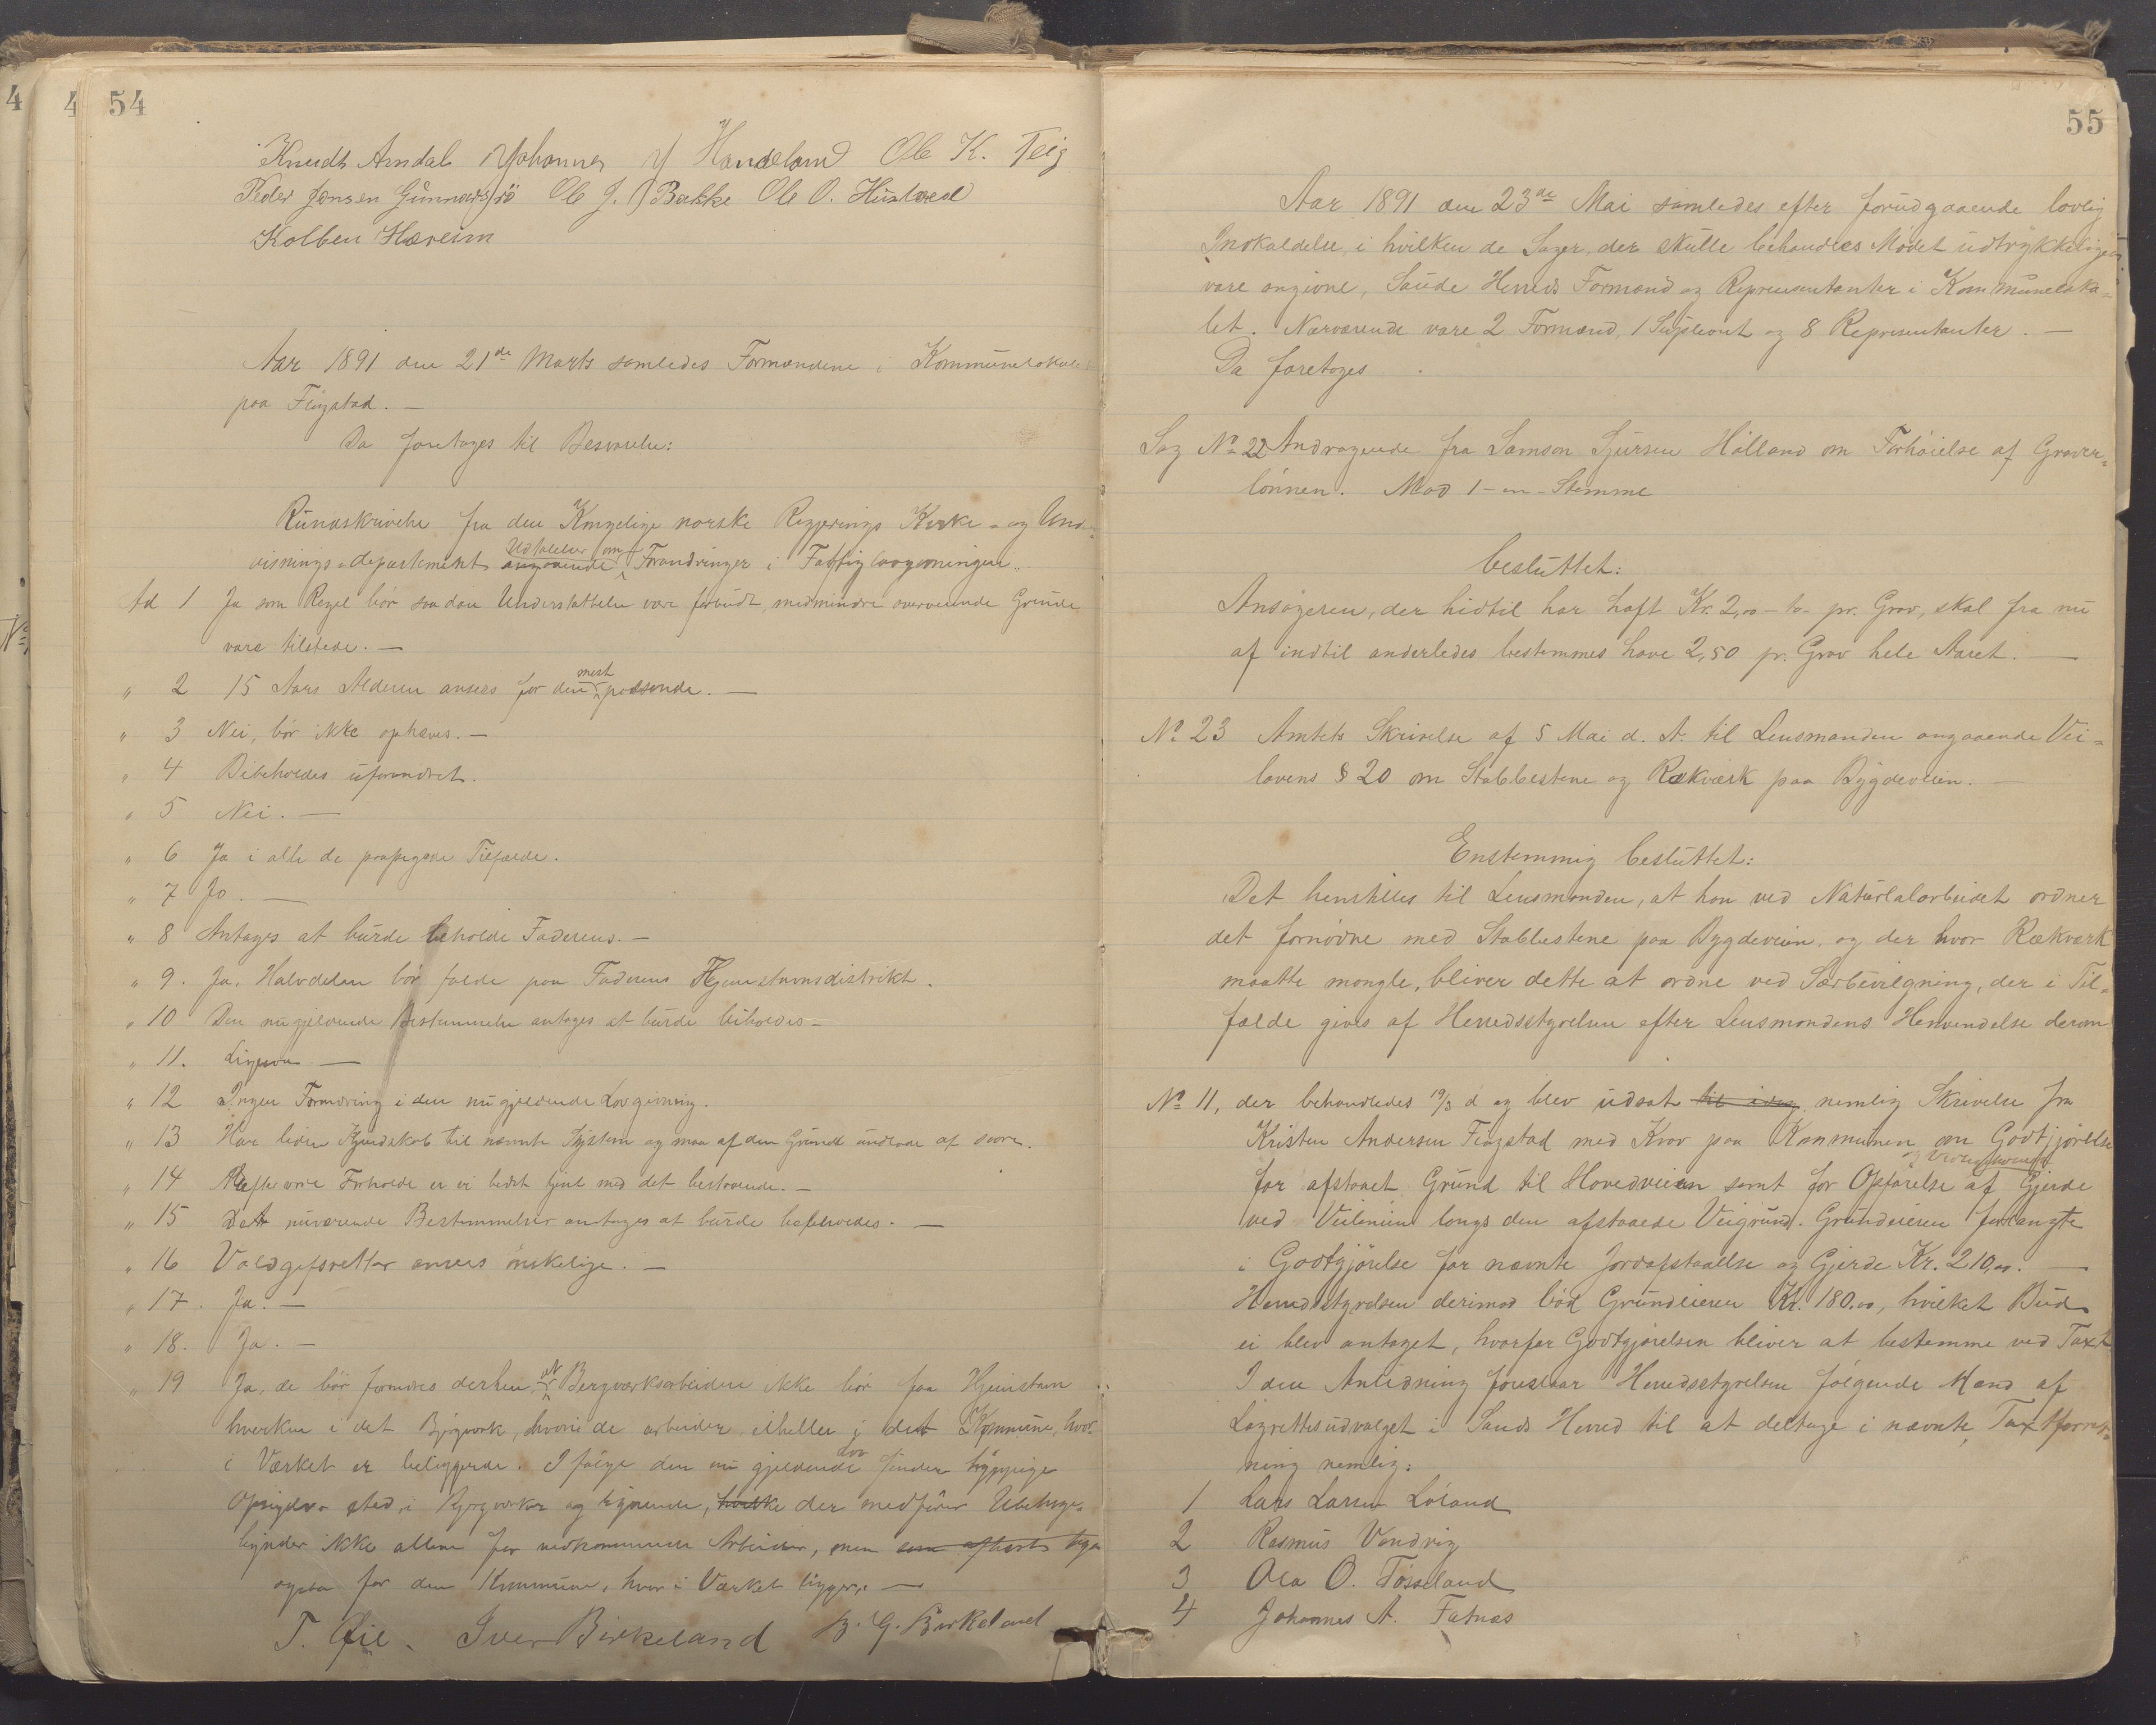 54
Knudt Arndal Johannes J Handeland Ole K. Teig
Peder Jensen Gunnarsjö Ole J. Bakke Ole O. Hustved
Kolben Hæreim
Aar 1891 den 21de Marts samledes Formændene i Kommunelokalet
paa Fingstad. —
Da foretoges til Besvarelse:
Rundskrivelse fra den Kongelige norske Regjerings Kirke- og Under-
visnings-departement angaaende Udtalelser om Forandringer i Fattiglovgivningen.
Ad 1 Ja som Regel bör saadan Understøttelse være forbudt, medmindre overveiende Grunde
vare tilstede. —
" 2 15 Aars Alderen ansees for den mest passende. —
" 3 Nei, bör ikke ophæves. —
" 4 Bibeholdes uforandret.
" 5 Nei. —
" 6 Ja i alle de paapegede Tilfælde.
" 7 Jo. —
" 8 Antages at burde beholde Faderens. —
" 9. Ja. Halvdelen bör falde paa Faderens Hjemstavnsdistrikt.
" 10 Den nugjeldende Bestemmelse antages at burde beholdes —
" 11. Ligesaa —
" 12 Ingen Forandring i den nugjeldende Lovgivning.
" 13 Har liden Kjendskab til nævnte System og maa af den Grund undlade at svare.
" 14 Efter vore Forholde er vi bedst tjent med det bestaaende. —
" 15 Det nuværende Bestemmelser antages at burde beholdes. —
" 16 Voldgifsretter ansees ønskelige. —
" 17. Ja. —
" 18. Ja. —
" 19 Ja, de bör forandres derhen, at Bergværksarbeidere ikke bör faa Hjemstavn
hverken i det Bjergværk, hvori de arbeider eiheller i det Kommune, hvor
i Værket er beliggende. I følge den nu gjeldende Lov finder hyppige
Opsigelser sted i Bjergværker og lignende, hvilke der medförer Ubehage-
ligheder ikke allene for vedkommende Arbeider, men
ogsaa for den Kommune, hvor i Værket ligger. —
T. Øie. Iver Birkeland B. G. Birkeland
55
Aar 1891 den 23de Mai samledes efter forudgaaende lovlig
Indkaldelse, i hvilken de Sager, der skulle behandles Mødet udtrykkeligen
vare angivne, Saude Herreds Formænd og Repræsentanter i Kommuneloka-
let. Nærværende vare 2 Formænd, 1 Supleant og 8 Repræsentanter. —
Da foretoges
Sag No 22 Andragende fra Samson Sjursen Hålland om Forhöielse af Graver-
lönnen. Mod 1 - en - Stemme
besluttet:
Ansögeren, der hidtil har haft Kr. 2,00 - to - pr. Grav, skal fra nu
af indtil anderledes bestemmes have 2,50 pr. Grav hele Aaret. —
No 23 Amtets Skrivelse af 5 Mai d. A. til Lensmanden angaaende Vei-
lovens § 20 om Stabbestene og Rækværk paa Bygdeveien. —
Enstemmig besluttet:
Det henstilles til Lensmanden, at han ved Naturalarbeidet ordner
det fornödne med Stabbestene paa Bygdeveien, og der hvor Rækværk
maatte mangle, bliver dette at ordne ved Særbevilgning, der i Til-
fælde gives af Herredsstyrelsen efter Lensmandens Henvendelse derom
No 11, der behandledes 19/3 d og blev udsat til idag nemlig Skrivelse fra
Kristen Andersen Fingstad med Krav paa Kommunen om Godtgjörelse
for afstaaet Grund til Hovedveien samt for Opförelse og Vedligehold af Gjerde
ved Veilinien langs den afstaaede Veigrund. Grundeieren forlangte
i Godtgjörelse for nævnte Jordafstaaelse og Gjerde Kr. 210,00. —
Herredsstyrelsen derimod böd Grundeieren Kr. 180.00, hvilket Bud
ei blev antaget, hvorfor Godtgjörelsen bliver at bestemme ved Taxt
I den Anledning foreslaar Herredsstyrelsen fölgende Mænd af
Lagrettesudvalget i Sauds Herred til at deltage i nævnte Taxtforret-
ning nemlig:
1 Lars Larsen Löland
2 Rasmus Vandvig
3 Ola O. Tösseland
4 Johannes A. Fatnæs